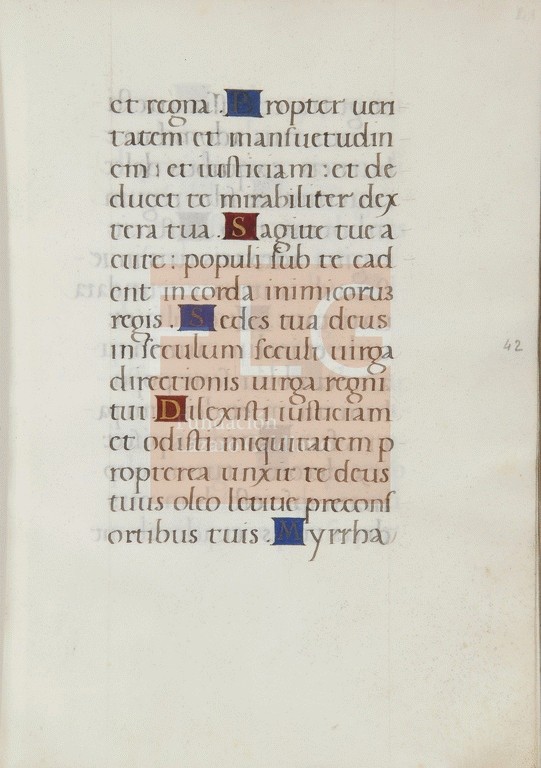 et regna . Propter ueri
tatem et mansuetudin
em : et iusticiam : et de
ducet te mirabiliter dex
tera tua . Sagitte tue a
cute : populi sub te cad
ent in corda inimicorum
regis . Sedes tua deus
in seculum seculi uirga
directionis uirga regni
tui . Dilexisti iusticiam
et odisti iniquitatem p
ropterea unxit te deus
tuus oleo letitie precons
ortibus tuis . Myrrha
42
FLG
Fundación